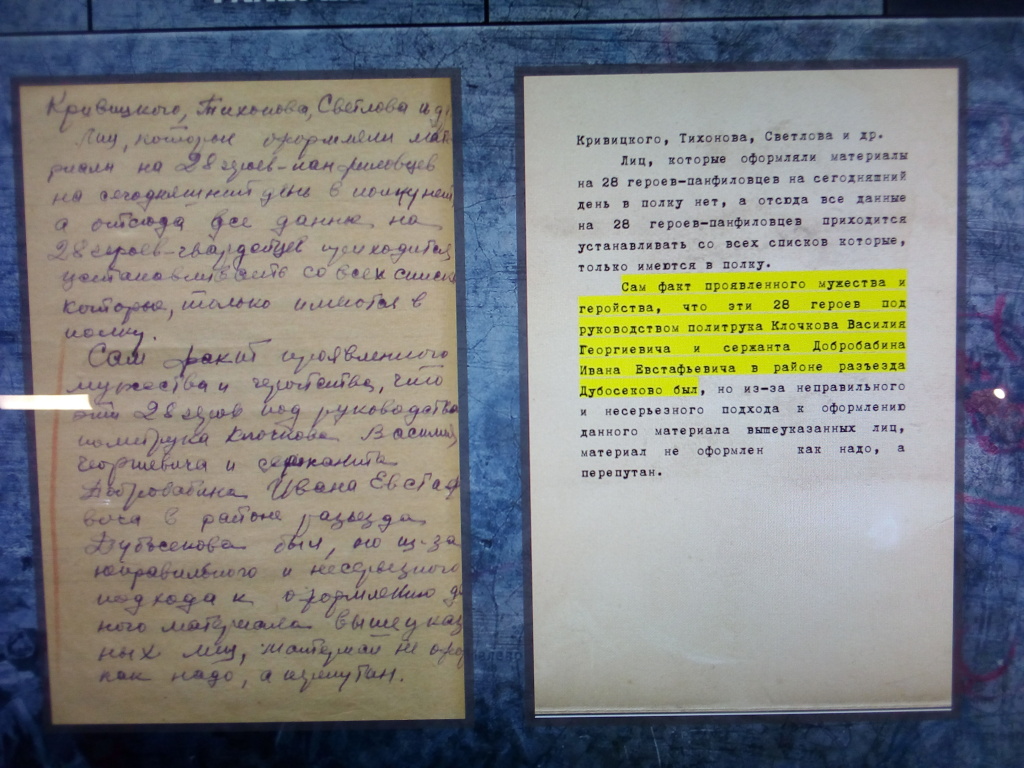 Кривицкого, Тихонова, Светлова и др
Лиц, которые оформляли мат
риали на 28 героев-панфиловцев
на сегодняшний день в полку нет
а отсюда все данные на
28 героев-гвардейцев приходится
устанавливать со всех списк
которые, только имеются в
полку.
Сам факт проявленного
мужества и геройства, что
эти 28 героев под руководство
политрука Клочкова Василия
Георгиевича и сержанта
Добробабина Ивана Евстаф
вича в районе разъезда
Дубосекова был, но из-за
неправильного и несерьезного
подхода к оформлению д
ного материала вышеуказ
ных лиц, материал не офо
как надо, а перепутан.
Кривицкого, Тихонова, Светлова и др.
Лиц, которые оформляли материалы
на 28 героев-панфиловцев на сегодняшний
день в полку нет, а отсюда все данные
на 28 героев-панфиловцев приходится
устанавливать со всех списков которые,
только имеются в полку.
Сам факт проявленного мужества и
геройства, что эти 28 героев под
руководством политрука Клочкова Василия
Георгиевича и сержанта Добробабина
Ивана Евстафьевича в районе разъезда
Дубосеково был, но из-за неправильного
и несерьезного подхода к оформлению
данного материала вышеуказанных лиц,
материал не оформлен как надо, а
перепутан.